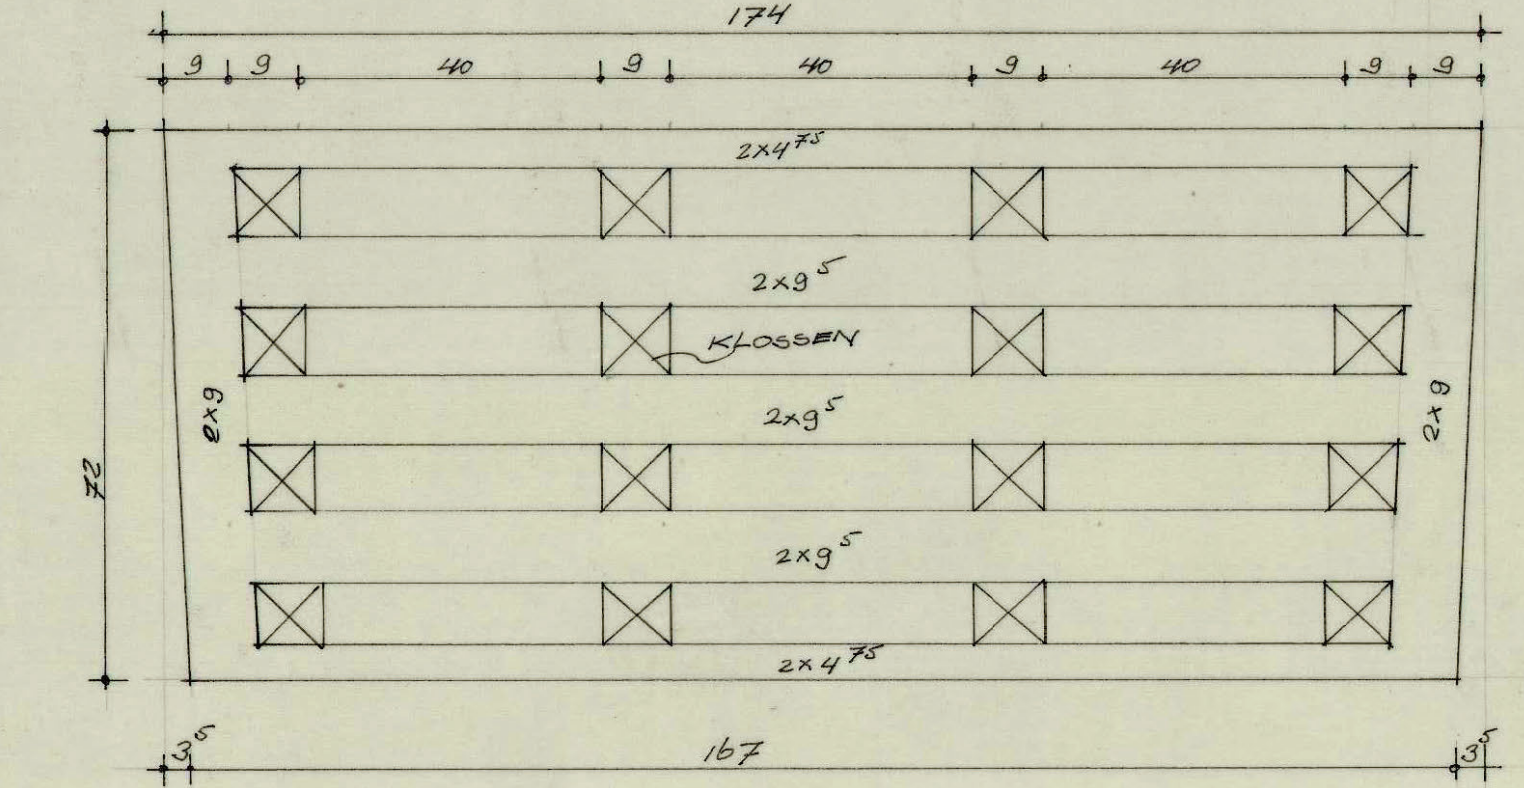 174
9 9 40 9 40 9 40 9 9
2x4⁷⁵
2x9⁵
KLOSSEN
2x9 2x9
2x9⁵
72
2x9⁵
2x4⁷⁵
3⁵ 167 3⁵